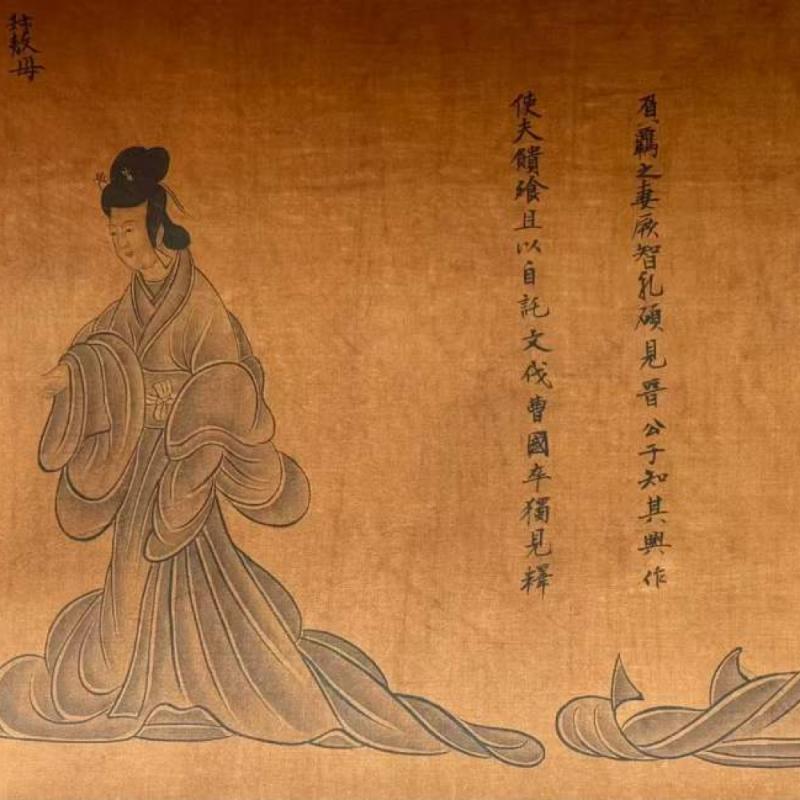 負羈之妻厥智孔碩見晉公子知其興作
使夫饋飧且以自託文伐曹國卒獨見釋
叔敖母